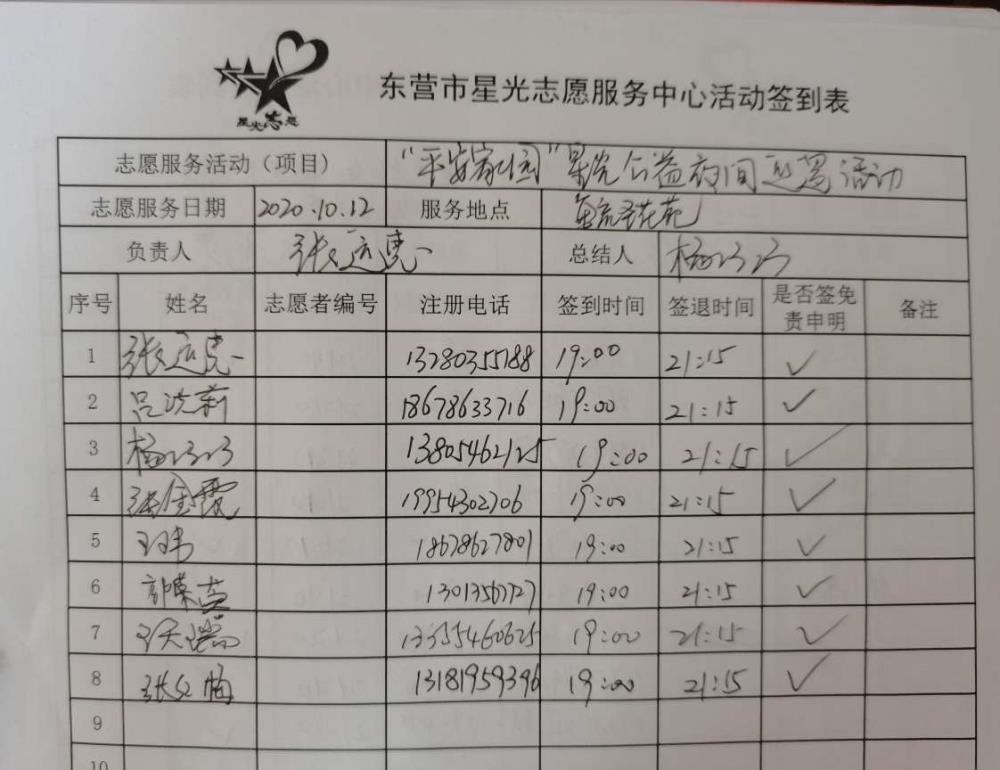 星光志愿
东营市星光志愿服务中心活动签到表
志愿服务活动（项目） “平安家园”星光公益夜间巡逻活动
志愿服务日期 2020.10.12 服务地点
负责人 张运惠 总结人 杨巧巧
序号 姓名 志愿者编号 注册电话 签到时间 签退时间 是否签免责申明 备注
1 张运惠 13780355188 19:00 21:15 ✓
2 吕洪莉 18678633716 19:00 21:15 ✓
3 杨巧巧 13805462125 19:00 21:15 ✓
4 张金霞 19954302706 19:00 21:15 ✓
5 18678627801 19:00 21:15 ✓
6 郭荣英 19:00 21:15 ✓
7 13355460625 19:00 21:15 ✓
8 张文梅 13181959396 19:00 21:15 ✓
9
10